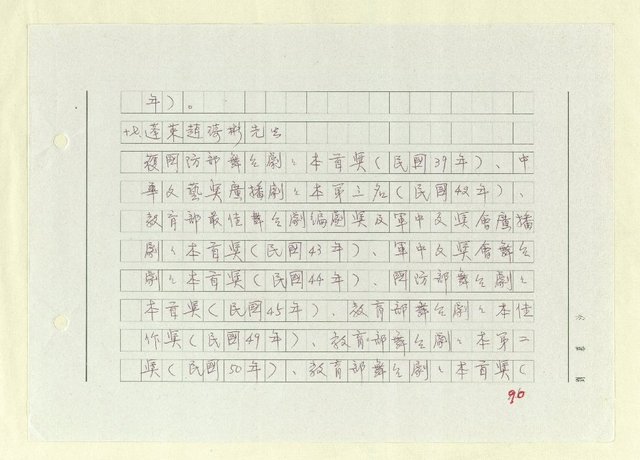 年)。
十七、蓬萊趙琦彬先生
獲國防部舞台劇劇本首奬(民國39年)、中
華文藝奬廣播劇劇本第三名(民國42年)、
教育部最佳舞台劇編劇奬及軍中文奬會廣播
劇劇本首奬(民國43年)、軍中文奬會舞台
劇劇本首奬(民國44年)、國防部舞台劇劇
本首奬(民國45年)、教育部舞台劇劇本佳
作奬(民國49年)、教育部舞台劇劇本第二
奬(民國50年)、教育部舞台劇劇本首奬(
96